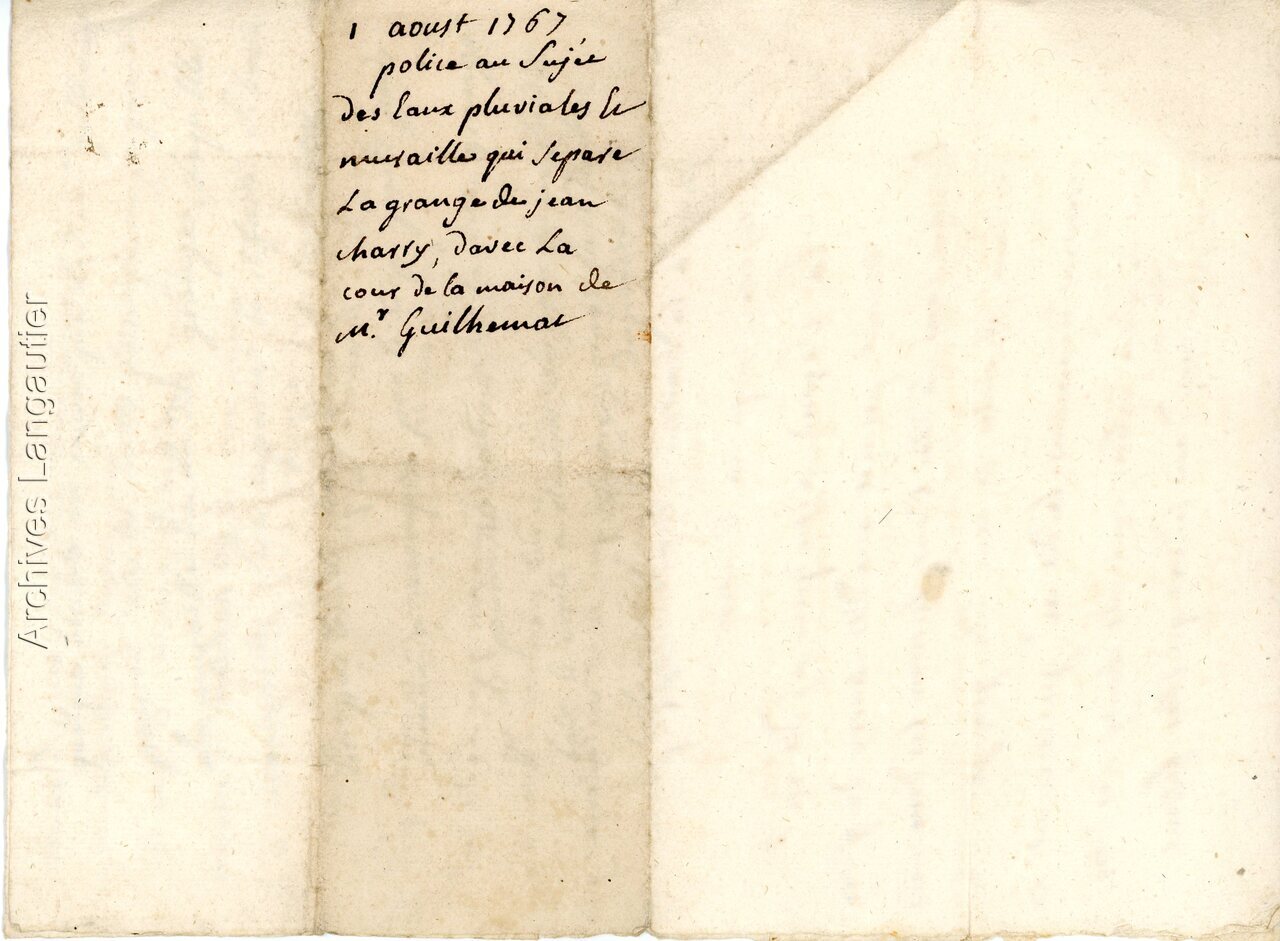 1 aoust 1767
police au Sujet
des Eaux pluviales Et
muraille qui Separe
La grange de jean
charry, davec La
cour de la maison de
Mr. Guilhemat
Archives Langautier